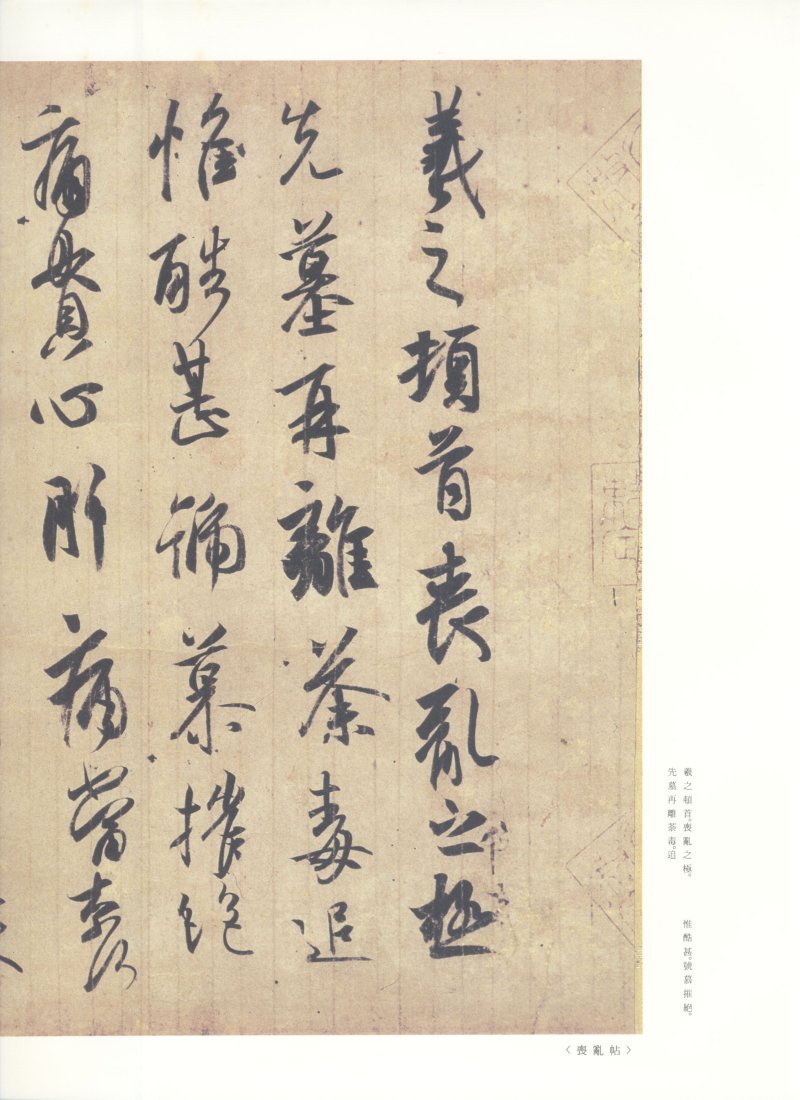 羲之頓首喪亂之極
先墓再離荼毒追
惟酷甚號慕摧絕
痛貫心肝痛當奈何
羲之頓首。喪亂之極。
先墓再離荼毒。追
惟酷甚。號慕摧絕。
〈喪亂帖〉